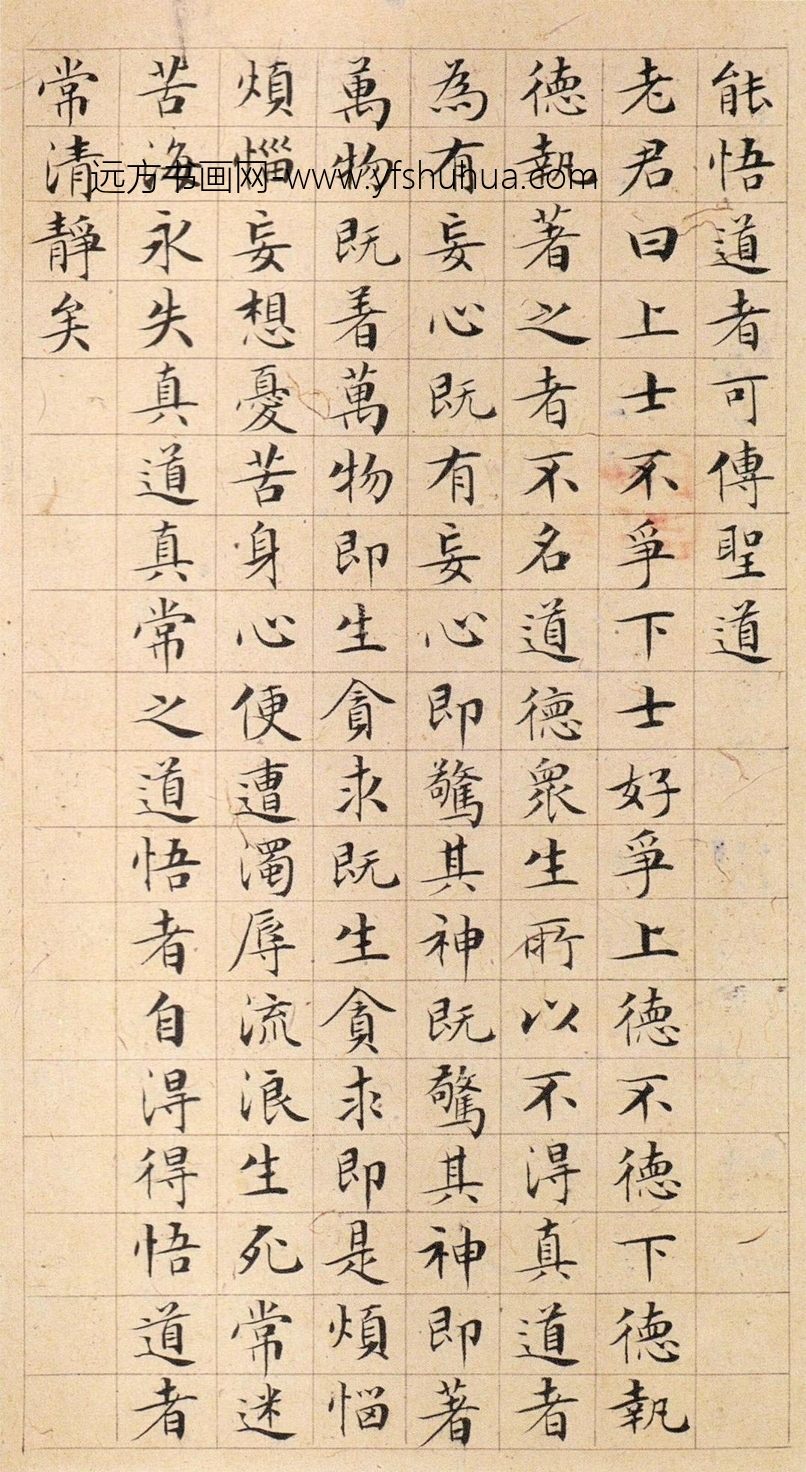 能悟道者可傳聖道
老君曰上士不爭下士好爭上德不德下德執
德執著之者不名道德衆生所以不得真道者
為有妄心既有妄心即驚其神既驚其神即著
萬物既着萬物即生貪求既生貪求即是煩惱
煩惱妄想憂苦身心便遭濁辱流浪生死常迷
苦海永失真道真常之道悟者自得得悟道者
常清靜矣
远方书画网-www.yfshuhua.com